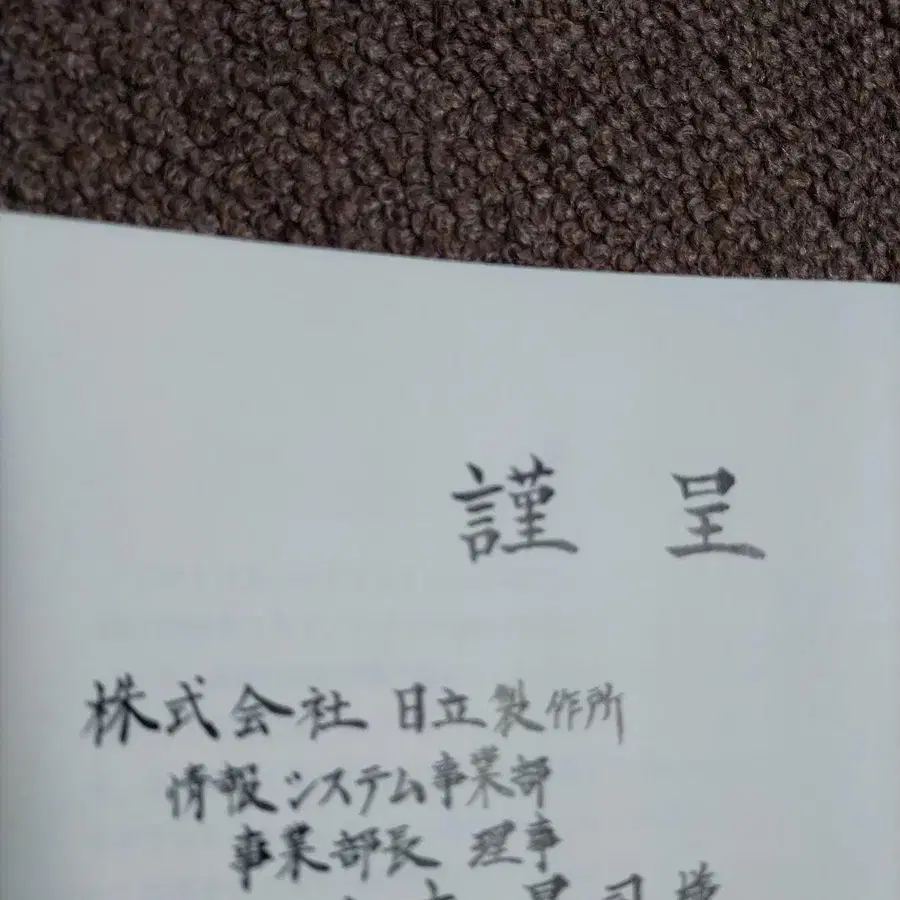 謹呈
株式会社 日立製作所
情報システム事業部
事業部長 理事